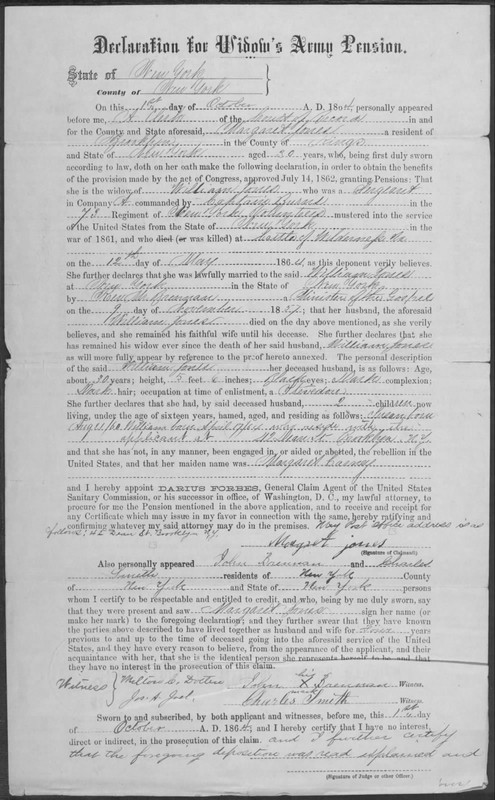 Declaration for Widow's Army Pension.
State of New York
County of New York
On this 1st day of October A. D. 1864, personally appeared
before me, A Clerk of the Court of Records in and
for the County and State aforesaid, Margaret Jones a resident of
Brooklyn in the County of Kings
and State of New York aged 30 years, who, being first duly sworn
according to law, doth on her oath make the following declaration, in order to obtain the benefits
of the provision made by the act of Congress, approved July 14, 1862, granting Pensions: That
she is the widow of William Jones who was a Sergeant
in Company A commanded by Captain Burns in the
73 Regiment of New York Volunteers mustered into the service
of the United States from the State of New York in the
war of 1861, and who died (or was killed) at Battle of Wilderness Va
on the 12th day of May 1864, as this deponent verily believes.
She further declares that she was lawfully married to the said William Jones
at New York in the State of New York
by a Minister of the Gospel
on the 9 day of November 1857; that her husband, the aforesaid
William Jones died on the day above mentioned, as she verily
believes, and she remained his faithful wife until his decease. She further declares that she
has remained his widow ever since the death of her said husband, William Jones
as will more fully appear by reference to the proof hereto annexed. The personal description
of the said William Jones her deceased husband, is as follows: Age,
about 30 years; height, 5 feet 6 inches; eyes; dark complexion;
Dark hair; occupation at time of enlistment, a
She further declares that she had, by said deceased husband, 2 children now
living, under the age of sixteen years, named, aged, and residing as follows:
William born April reside with the
applicant at 42 Dean St Brooklyn N.Y.
and that she has not, in any manner, been engaged in, or aided or abetted, the rebellion in the
United States, and that her maiden name was Margaret
and I hereby appoint DARIUS FORBES, General Claim Agent of the United States
Sanitary Commission, or his successor in office, of Washington, D. C., my lawful attorney, to
procure for me the Pension mentioned in the above application, and to receive and receipt for
any Certificate which may issue in my favor in connection with the same, hereby ratifying and
confirming whatever my said attorney may do in the premises. My Post Office address is as
follows: 42 Dean St. Brooklyn N.Y.
Margret Jones
(Signature of Claimant.)
Also personally appeared John Brennan and Charles
Smith residents of New York County
of New York and State of New York persons
whom I certify to be respectable and entitled to credit, and who, being by me duly sworn, say
that they were present and saw Margaret Jones sign her name (or
make her mark) to the foregoing declaration; and they further swear that they have known
the parties above described to have lived together as husband and wife for years
previous to and up to the time of deceased going into the aforesaid service of the United
States, and they have every reason to believe, from the appearance of the applicant, and their
acquaintance with her, that she is the identical person she represents herself to be, and that
they have no interest in the prosecution of this claim.
Witness
John his X mark Brennan Witness.
Charles Smith Witness.
Sworn to and subscribed, by both applicant and witnesses, before me, this 1st day
of October A. D. 1864, and I hereby certify that I have no interest,
direct or indirect, in the prosecution of this claim. and I further certify
that the foregoing deposition was read explained and
(Signature of Judge or other officer.)